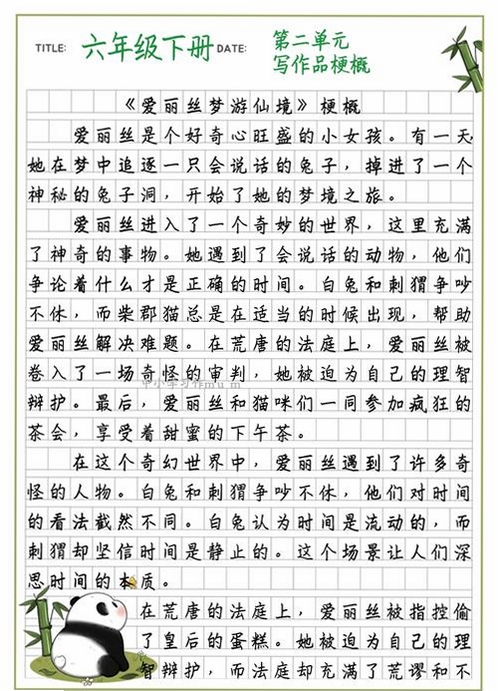 TITLE: 六年级下册 DATE: 第二单元
写作品梗概
《爱丽丝梦游仙境》梗概
爱丽丝是个好奇心旺盛的小女孩。有一天
她在梦中追逐一只会说话的兔子，掉进了一个
神秘的兔子洞，开始了她的梦境之旅。
爱丽丝进入了一个奇妙的世界，这里充满
了神奇的事物。她遇到了会说话的动物，他们
争论着什么才是正确的时间。白兔和刺猬争吵
不休，而柴郡猫总是在适当的时候出现，帮助
爱丽丝解决难题。在荒唐的法庭上，爱丽丝被
卷入了一场奇怪的审判，她被迫为自己的理智
辩护。最后，爱丽丝和猫咪们一同参加疯狂的
茶会，享受着甜蜜的下午茶。
在这个奇幻世界中，爱丽丝遇到了许多奇
怪的人物。白兔和刺猬争吵不休，他们对时间
的看法截然不同。白兔认为时间是流动的，而
刺猬却坚信时间是静止的。这个场景让人们深
思时间的本质。
在荒唐的法庭上，爱丽丝被指控偷
了皇后的蛋糕。她被迫为自己的理
智辩护，而法庭却充满了荒谬和不